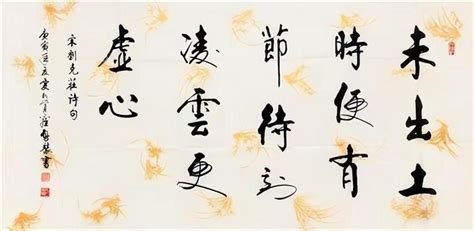 未出土
時便有
節待到
凌雲更
虛心
宋劉克莊詩句
庚寅
書